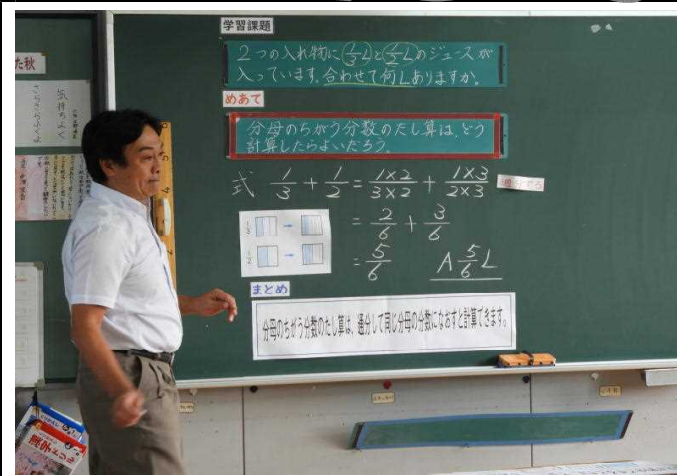 学習課題
2つの入れ物に1/3Lと1/2Lのジュースが
入っています。合わせて何Lありますか。
めあて
分母のちがう分数のたし算は、どう
計算したらよいだろう。
式 1/3 + 1/2 = 1×2/3×2 + 1×3/2×3
= 2/6 + 3/6
= 5/6 A 5/6 L
1/3
1/2
まとめ
分母のちがう分数のたし算は、通分して同じ分母の分数になおすと計算できます。
た秋
気持ちよく